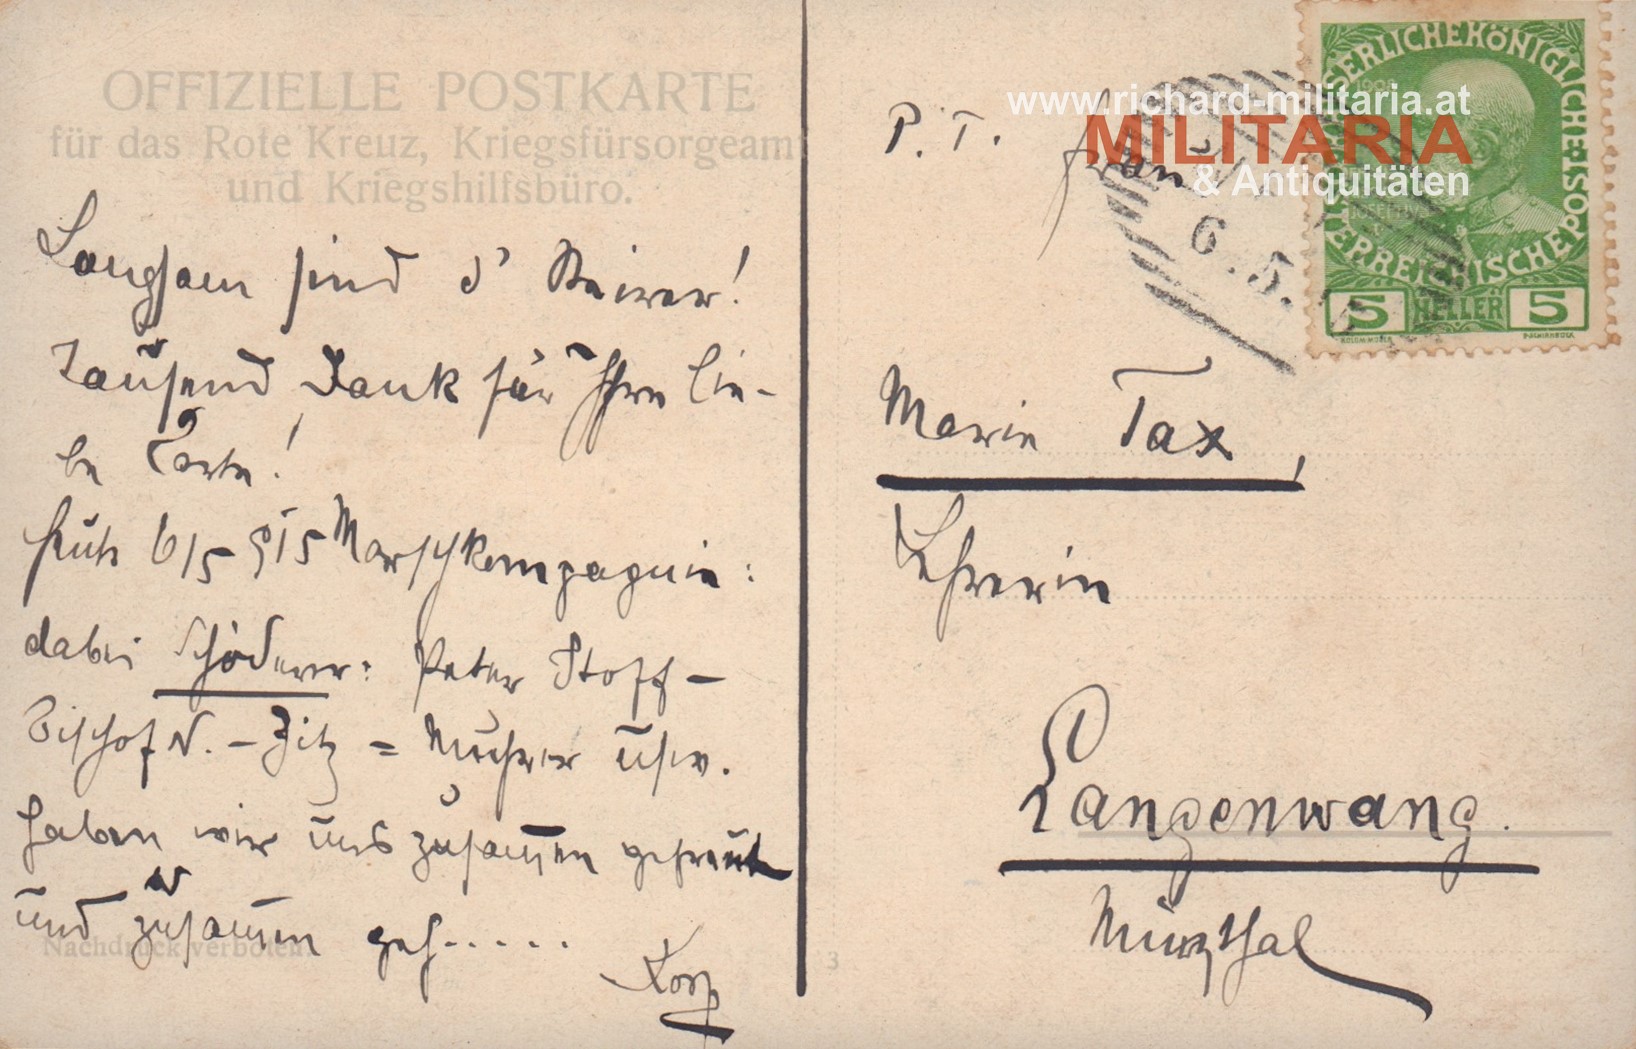 OFFIZIELLE POSTKARTE
für das Rote Kreuz, Kriegsfürsorgeamt
und Kriegshilfsbüro.
Langsam sind d'
Tausend Dank für Ihre lie-
be Karte!
6/5 915 Marschkompagnie:
dabei Schöderer: Peter Stoff-
Bischof N. - Zitz = Mührer usw.
haben wir uns zusammen gefreut
und zusammen ges......
Nachdruck verboten
3
P.T. Frau
www.richard-militaria.at
MILITARIA
& Antiquitäten
KAISERLICHE KÖNIGLICHE ÖSTERREICHISCHE POST
1908
5 HELLER 5
6.5.15
Marie Tax,
Lehrerin
Langenwang.
Mürzthal